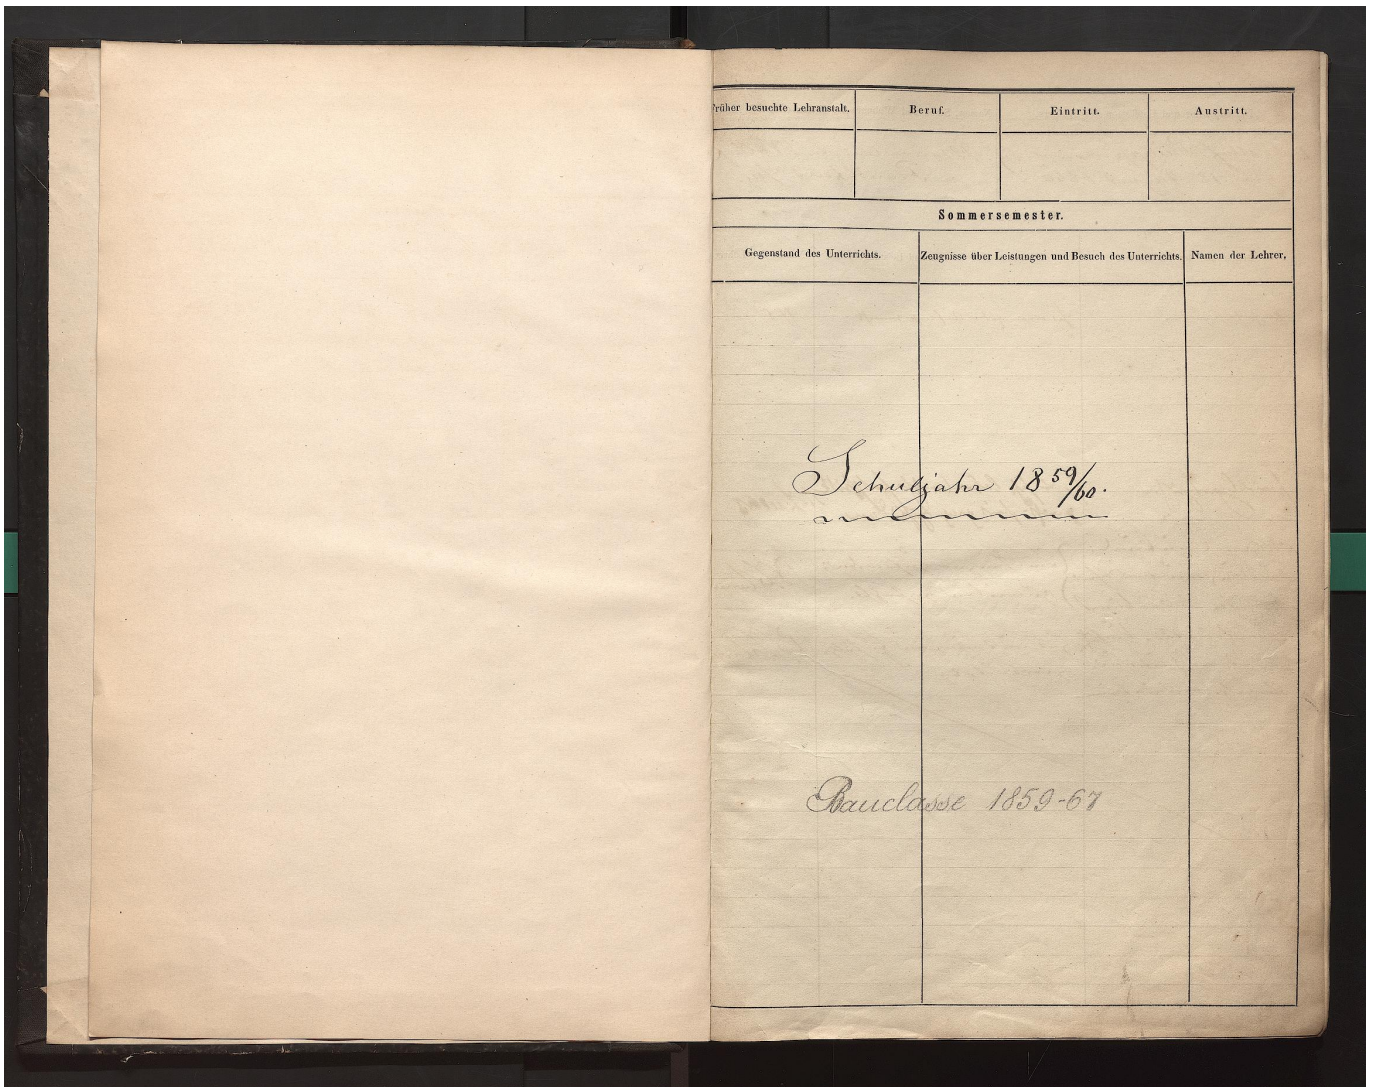 Früher besuchte Lehranstalt. Beruf. Eintritt. Austritt.
Sommersemester.
Gegenstand des Unterrichts. Zeugnisse über Leistungen und Besuch des Unterrichts. Namen der Lehrer.
Schuljahr 1859/60.
Bauclasse 1859-67